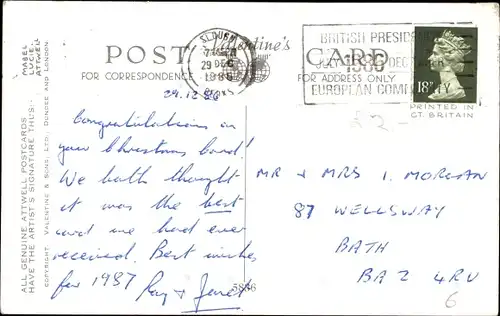 MABEL
LUCIE
ATTWELL
ALL GENUINE ATTWELL POSTCARDS
HAVE THE ARTIST'S SIGNATURE THUS:-
COPYRIGHT. VALENTINE & SONS, LTD., DUNDEE AND LONDON.
POST CARD
Valentine's
FOR CORRESPONDENCE
FOR ADDRESS ONLY
SLOUGH
29 DEC
1986
BRITISH PRESIDENCY
JULY 1986 DECEMBER
EUROPEAN COMMUNITY
18P
PRINTED IN
GT. BRITAIN
£2-
29.12.86
Congratulations on
your Christmas Card!
We both thought
it was the best
card we had ever
received. Best wishes
for 1987
Ray & Janet
5886
MR & MRS I. MORGAN
87 WELLSWAY
BATH
BA2 4RU
6